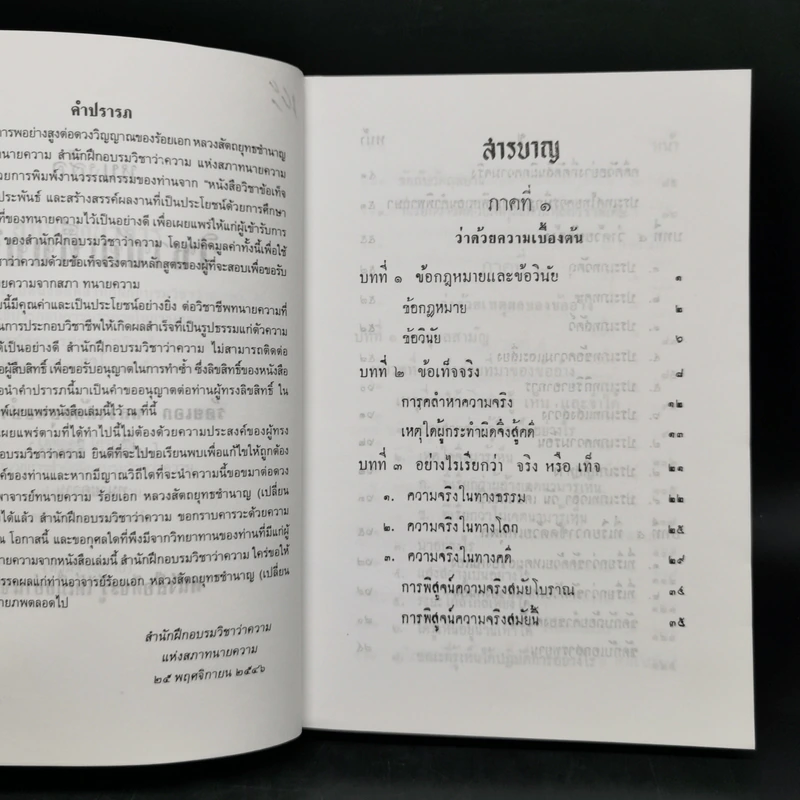 คำปรารภ
การพอย่างสูงต่อดวงวิญญาณของร้อยเอก หลวงสัตถยุทธชำนาญ
ทนายความ สำนักฝึกอบรมวิชาว่าความ แห่งสภาทนายความ
วยการพิมพ์งานวรรณกรรมของท่านจาก "หนังสือวิชาข้อเท็จ
ประพันธ์ และสร้างสรรค์ผลงานที่เป็นประโยชน์ด้วยการศึกษา
ที่ของทนายความไว้เป็นอย่างดี เพื่อเผยแพร่ให้แก่ผู้เข้ารับการ
ของสำนักฝึกอบรมวิชาว่าความ โดยไม่คิดมูลค่าทั้งนี้เพื่อใช้
ว่าความด้วยข้อเท็จจริงตามหลักสูตรของผู้ที่จะสอบเพื่อขอรับ
ความจากสภา ทนายความ
นี้มีคุณค่าและเป็นประโยชน์อย่างยิ่ง ต่อวิชาชีพทนายความที่
นการประกอบวิชาชีพให้เกิดผลสำเร็จที่เป็นรูปธรรมแก่ตัวความ
ด้เป็นอย่างดี สำนักฝึกอบรมวิชาว่าความ ไม่สามารถติดต่อ
อผู้สืบสิทธิ์ เพื่อขอรับอนุญาตในการทำซ้ำ ซึ่งลิขสิทธิ์ของหนังสือ
อนำคำปรารภนี้มาเป็นคำขออนุญาตต่อท่านผู้ทรงลิขสิทธิ์ ใน
พ์เผยแพร่หนังสือเล่มนี้ไว้ ณ ที่นี้
เผยแพร่ตามที่ได้ทำไปนี้ไม่ต้องด้วยความประสงค์ของผู้ทรง
อบรมวิชาว่าความ ยินดีที่จะไปขอเรียนพบเพื่อแก้ไขให้ถูกต้อง
ค์ของท่านและหากมีญาณวิถีใดที่จะนำความนี้ขอขมาต่อดวง
พาจารย์ทนายความ ร้อยเอก หลวงสัตถยุทธชำนาญ (เปลี่ยน
ได้แล้ว สำนักฝึกอบรมวิชาว่าความ ขอกราบคารวะด้วยความ
ณ โอกาสนี้ และขอกุศลใดที่พึงมีจากวิทยาทานของท่านที่มีแก่ผู้
นายความจากหนังสือเล่มนี้ สำนักฝึกอบรมวิชาว่าความ ใคร่ขอให้
รรคผลแก่ท่านอาจารย์ร้อยเอก หลวงสัตถยุทธชำนาญ (เปลี่ยน
ายภพตลอดไป
สำนักฝึกอบรมวิชาว่าความ
แห่งสภาทนายความ
๒๕ พฤศจิกายน ๒๕๔๖
สารบาญ
ภาคที่ ๑
ว่าด้วยความเบื้องต้น
บทที่ ๑ ข้อกฎหมายและข้อวินัย ๑
ข้อกฎหมาย ๒
ข้อวินัย ๖
บทที่ ๒ ข้อเท็จจริง ๘
การคลำหาความจริง ๑๒
เหตุใดผู้กระทำผิดจึงสู้คดี ๑๓
บทที่ ๓ อย่างไรเรียกว่า จริง หรือ เท็จ ๒๑
๑. ความจริงในทางธรรม ๒๒
๒. ความจริงในทางโลก ๒๕
๓. ความจริงในทางคดี ๒๙
การพิสูจน์ความจริงสมัยโบราณ ๓๔
การพิสูจน์ความจริงสมัยนี้ ๓๕